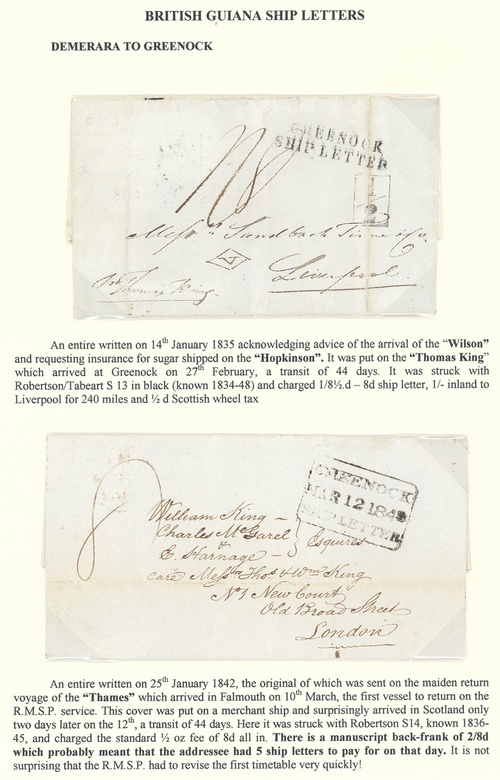 BRITISH GUIANA SHIP LETTERS
DEMERARA TO GREENOCK
GREENOCK
SHIP LETTER
1/8
1
2
Messrs Sandbach Tinne & Co.
Liverpool.
Thomas King.
An entire written on 14th January 1835 acknowledging advice of the arrival of the “Wilson”
and requesting insurance for sugar shipped on the “Hopkinson”. It was put on the “Thomas King”
which arrived at Greenock on 27th February, a transit of 44 days. It was struck with
Robertson/Tabeart S 13 in black (known 1834-48) and charged 1/8½.d – 8d ship letter, 1/- inland to
Liverpool for 240 miles and ½ d Scottish wheel tax
GREENOCK
MAR 12 1842
SHIP LETTER
8
William King –
Charles McGarel
&
E. Harnage –
Esquires
care Messrs Thos & Wm King
No 1 New Court
Old Broad Street
London
An entire written on 25th January 1842, the original of which was sent on the maiden return
voyage of the “Thames” which arrived in Falmouth on 10th March, the first vessel to return on the
R.M.S.P. service. This cover was put on a merchant ship and surprisingly arrived in Scotland only
two days later on the 12th, a transit of 44 days. Here it was struck with Robertson S14, known 1836-
45, and charged the standard ½ oz fee of 8d all in. There is a manuscript back-frank of 2/8d
which probably meant that the addressee had 5 ship letters to pay for on that day. It is
not surprising that the R.M.S.P. had to revise the first timetable very quickly!